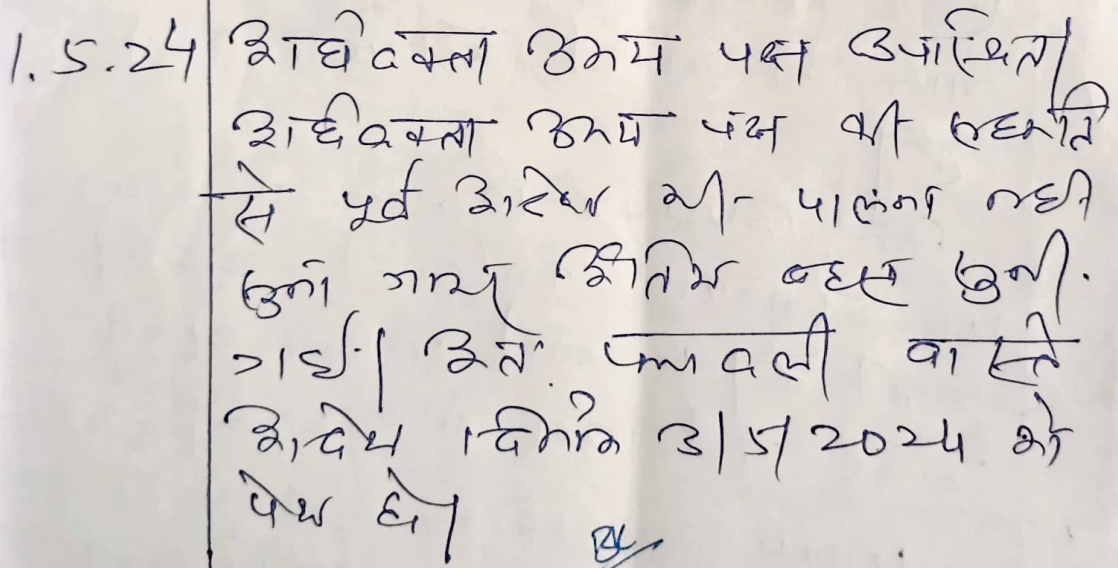 1.5.24 अधिवक्ता उभय पक्ष उपस्थित।
अधिवक्ता उभय पक्ष की सहमति
से पूर्व आदेश की पालना नही
सुना गया अंतिम बहस सुनी.
गई। अतः पत्रावली वास्ते
आदेश दिनांक 3/5/2024 को
पेश हो।